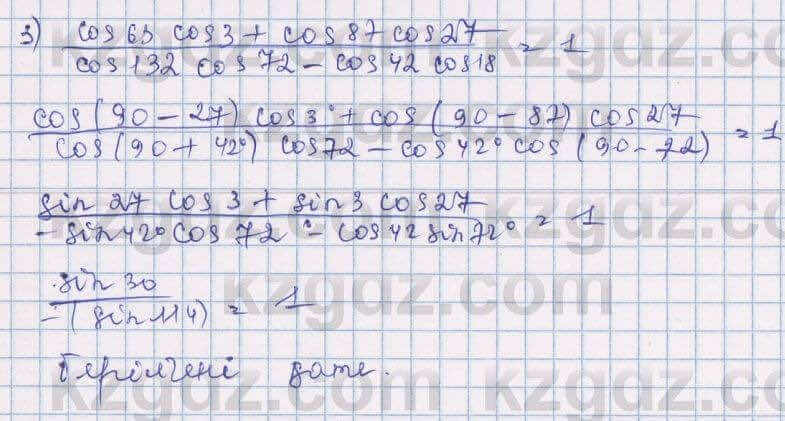 3) cos 63 cos 3 + cos 87 cos 27 / cos 132 cos 72 − cos 42 cos 18 = 1
cos(90 − 27) cos 3° + cos (90 − 87) cos 27 / cos(90 + 42°) cos 72 − cos 42° cos (90 − 72) = 1
sin 27 cos 3 + sin 3 cos 27 / − sin 42° cos 72° − cos 42 sin 72° = 1
sin 30 / − (sin 114) = 1
Берілгені қате.
kzgdz.com